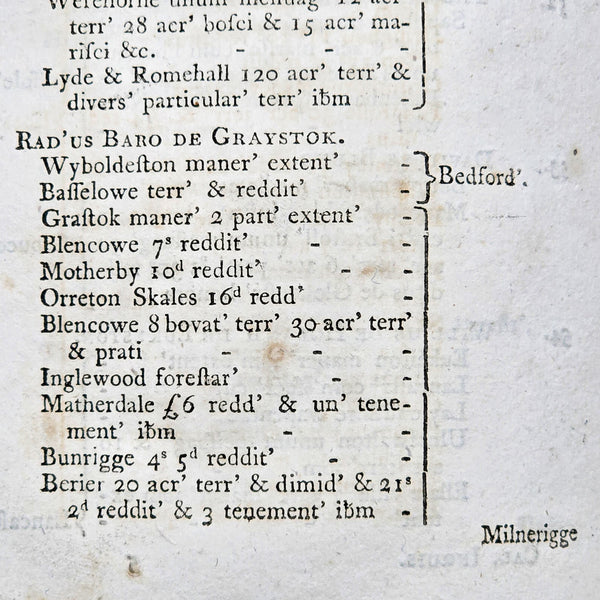 Werehorne unum mesuag' 12 acr'
terr' 28 acr' bosci & 15 acr' ma-
risci &c. - - -
Lyde & Romehall 120 acr' terr' &
divers' particular' terr' ibm -
RAD'US BARO DE GRAYSTOK.
Wyboldeſton maner' extent' -
Baſſelowe terr' & reddit' - Bedford'.
Graſtok maner' 2 part' extent' -
Blencowe 7s reddit' - -
Motherby 10d reddit' - -
Orreton Skales 16d redd' -
Blencowe 8 bovat' terr' 30 acr' terr'
& prati - - -
Inglewood foreſtar' - -
Matherdale £6 redd' & un' tene-
ment' ibm - -
Bunrigge 4s 5d reddit' - -
Berier 20 acr' terr' & dimid' & 21s
2d reddit' & 3 tenement' ibm -
Milnerigge